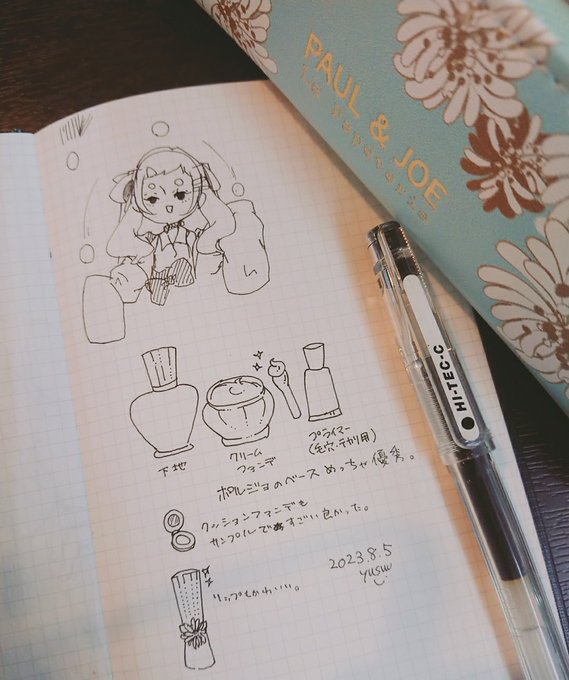 PAUL & JOE
La Papeterie
HI-TEC-C
ム
下地
クリーム
ファンデ
プライマー
(毛穴・テカリ用)
ポルジョのベースめっちゃ優秀。
クッションファンデも
サンプルですごい良かった。
リップもかわいい。
2023.8.5
yusuu